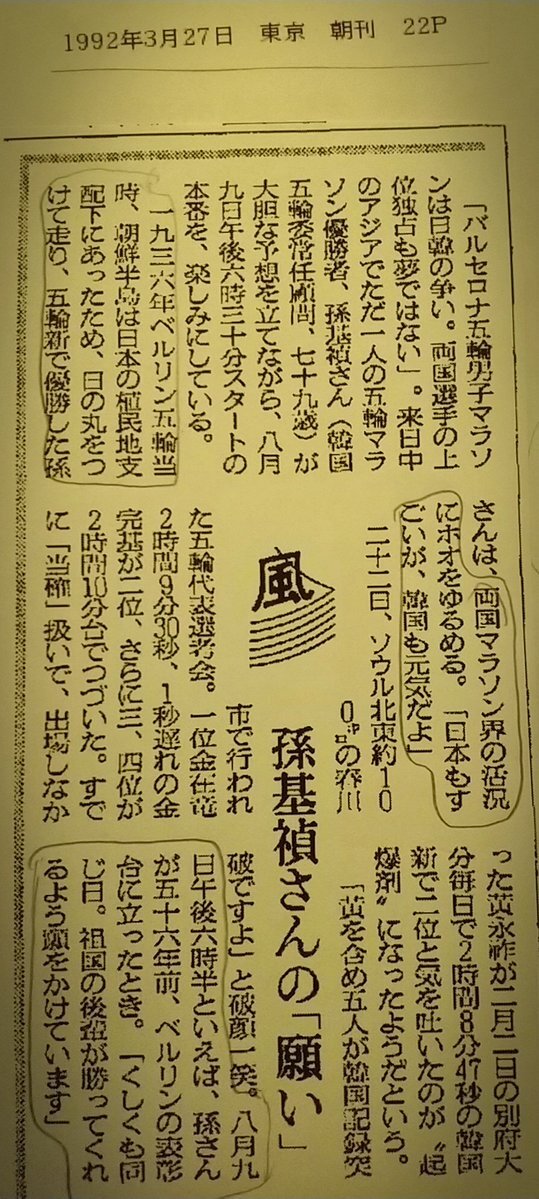 1992年3月27日 東京 朝刊 22P
「バルセロナ五輪男子マラソ
ンは日韓の争い。両国選手の上
位独占も夢ではない」。来日中
のアジアでただ一人の五輪マラ
ソン優勝者、孫基禎さん（韓国
五輪委常任顧問、七十九歳）が
大胆な予想を立てながら、八月
九日午後六時三十分スタートの
本番を、楽しみにしている。
一九三六年ベルリン五輪当
時、朝鮮半島は日本の植民地支
配下にあったため、日の丸をつ
けて走り、五輪新で優勝した孫
さんは、両国マラソン界の活況
にホオをゆるめる。「日本もす
ごいが、韓国も元気だよ」
二十二日、ソウル北東約10
0㌔の春川
風
孫基禎さんの「願い」
市で行われ
た五輪代表選考会。一位金在竜
2時間9分30秒、1秒遅れの金
完基が二位、さらに三、四位が
2時間10分台でつづいた。すで
に「当確」扱いで、出場しなか
った黄永祚が二月二日の別府大
分毎日で2時間8分47秒の韓国
新で二位と気を吐いたのが〝起
爆剤〟になったようだという。
「黄を含め五人が韓国記録突
破ですよ」と破顔一笑。八月九
日午後六時半といえば、孫さん
が五十六年前、ベルリンの表彰
台に立ったとき。「くしくも同
じ日。祖国の後輩が勝ってくれ
るよう願をかけています」